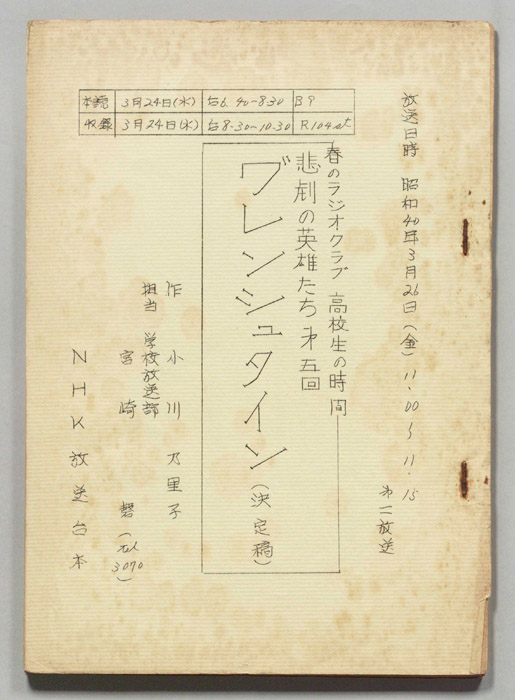 本読 3月24日(水) 后6.40-8.30 B9
収録 3月24日(水) 后8.30-10.30 R104st
放送日時 昭和40年3月26日(金) 11.00〜11.15
第二放送
春のラジオクラブ 高校生の時間
悲劇の英雄たち 第五回
ワレンシュタイン(決定稿)
作 小川乃里子
担当 学校放送部
宮崎 馨(3070)
NHK放送台本